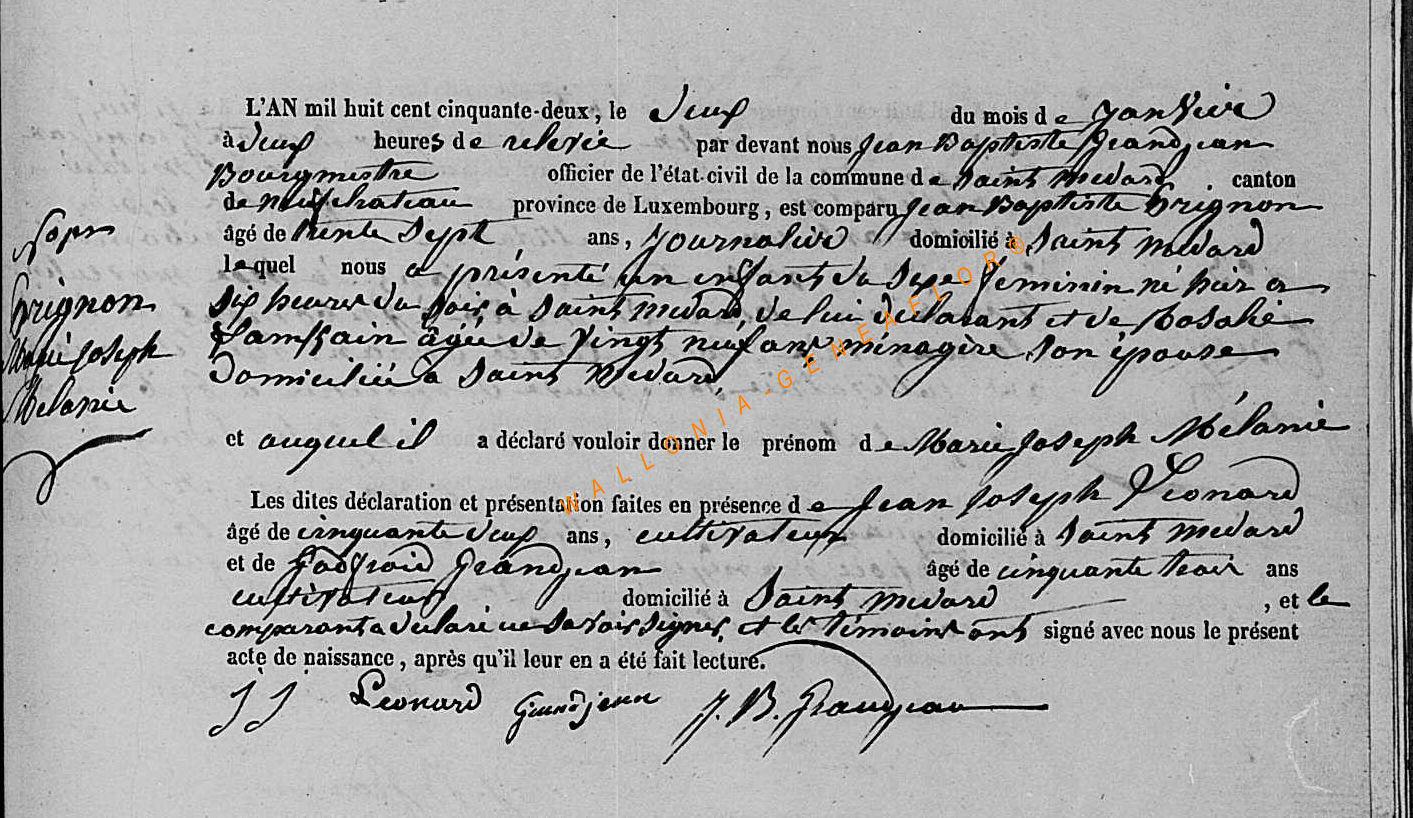 L'AN mil huit cent cinquante-deux, le deux du mois de Janvier
à deux heures de relevée par devant nous Jean Baptiste Grandjean
Bourgmestre officier de l'état-civil de la commune de Saint Médard, canton
de Neufchateau province de Luxembourg, est comparu Jean Baptiste Grignon
âgé de trente sept ans, Journalier domicilié à Saint Médard
lequel nous a présenté un enfant du sexe féminin né hier a
six heures du soir, à Saint Médard, de lui déclarant et de Rosalie
âgée de vingt neuf ans ménagère, son épouse
domiciliée à Saint Médard,
Grignon
Marie Joseph
Mélanie
et auquel il a déclaré vouloir donner le prénom de Marie Joseph Mélanie
Les dites déclaration et présentation faites en présence de Jean Joseph Léonard
âgé de cinquante deux ans, cultivateur domicilié à Saint Médard
et de Godfroid Grandjean âgé de cinquante trois ans
cultivateur domicilié à Saint Médard, et le
comparant a déclaré ne savoir signer, et les témoins ont signé avec nous le présent
acte de naissance, après qu'il leur en a été fait lecture.
JJ Leonard Grandjean J. B. Grandjean
WALLONIA-GENEAFLORE